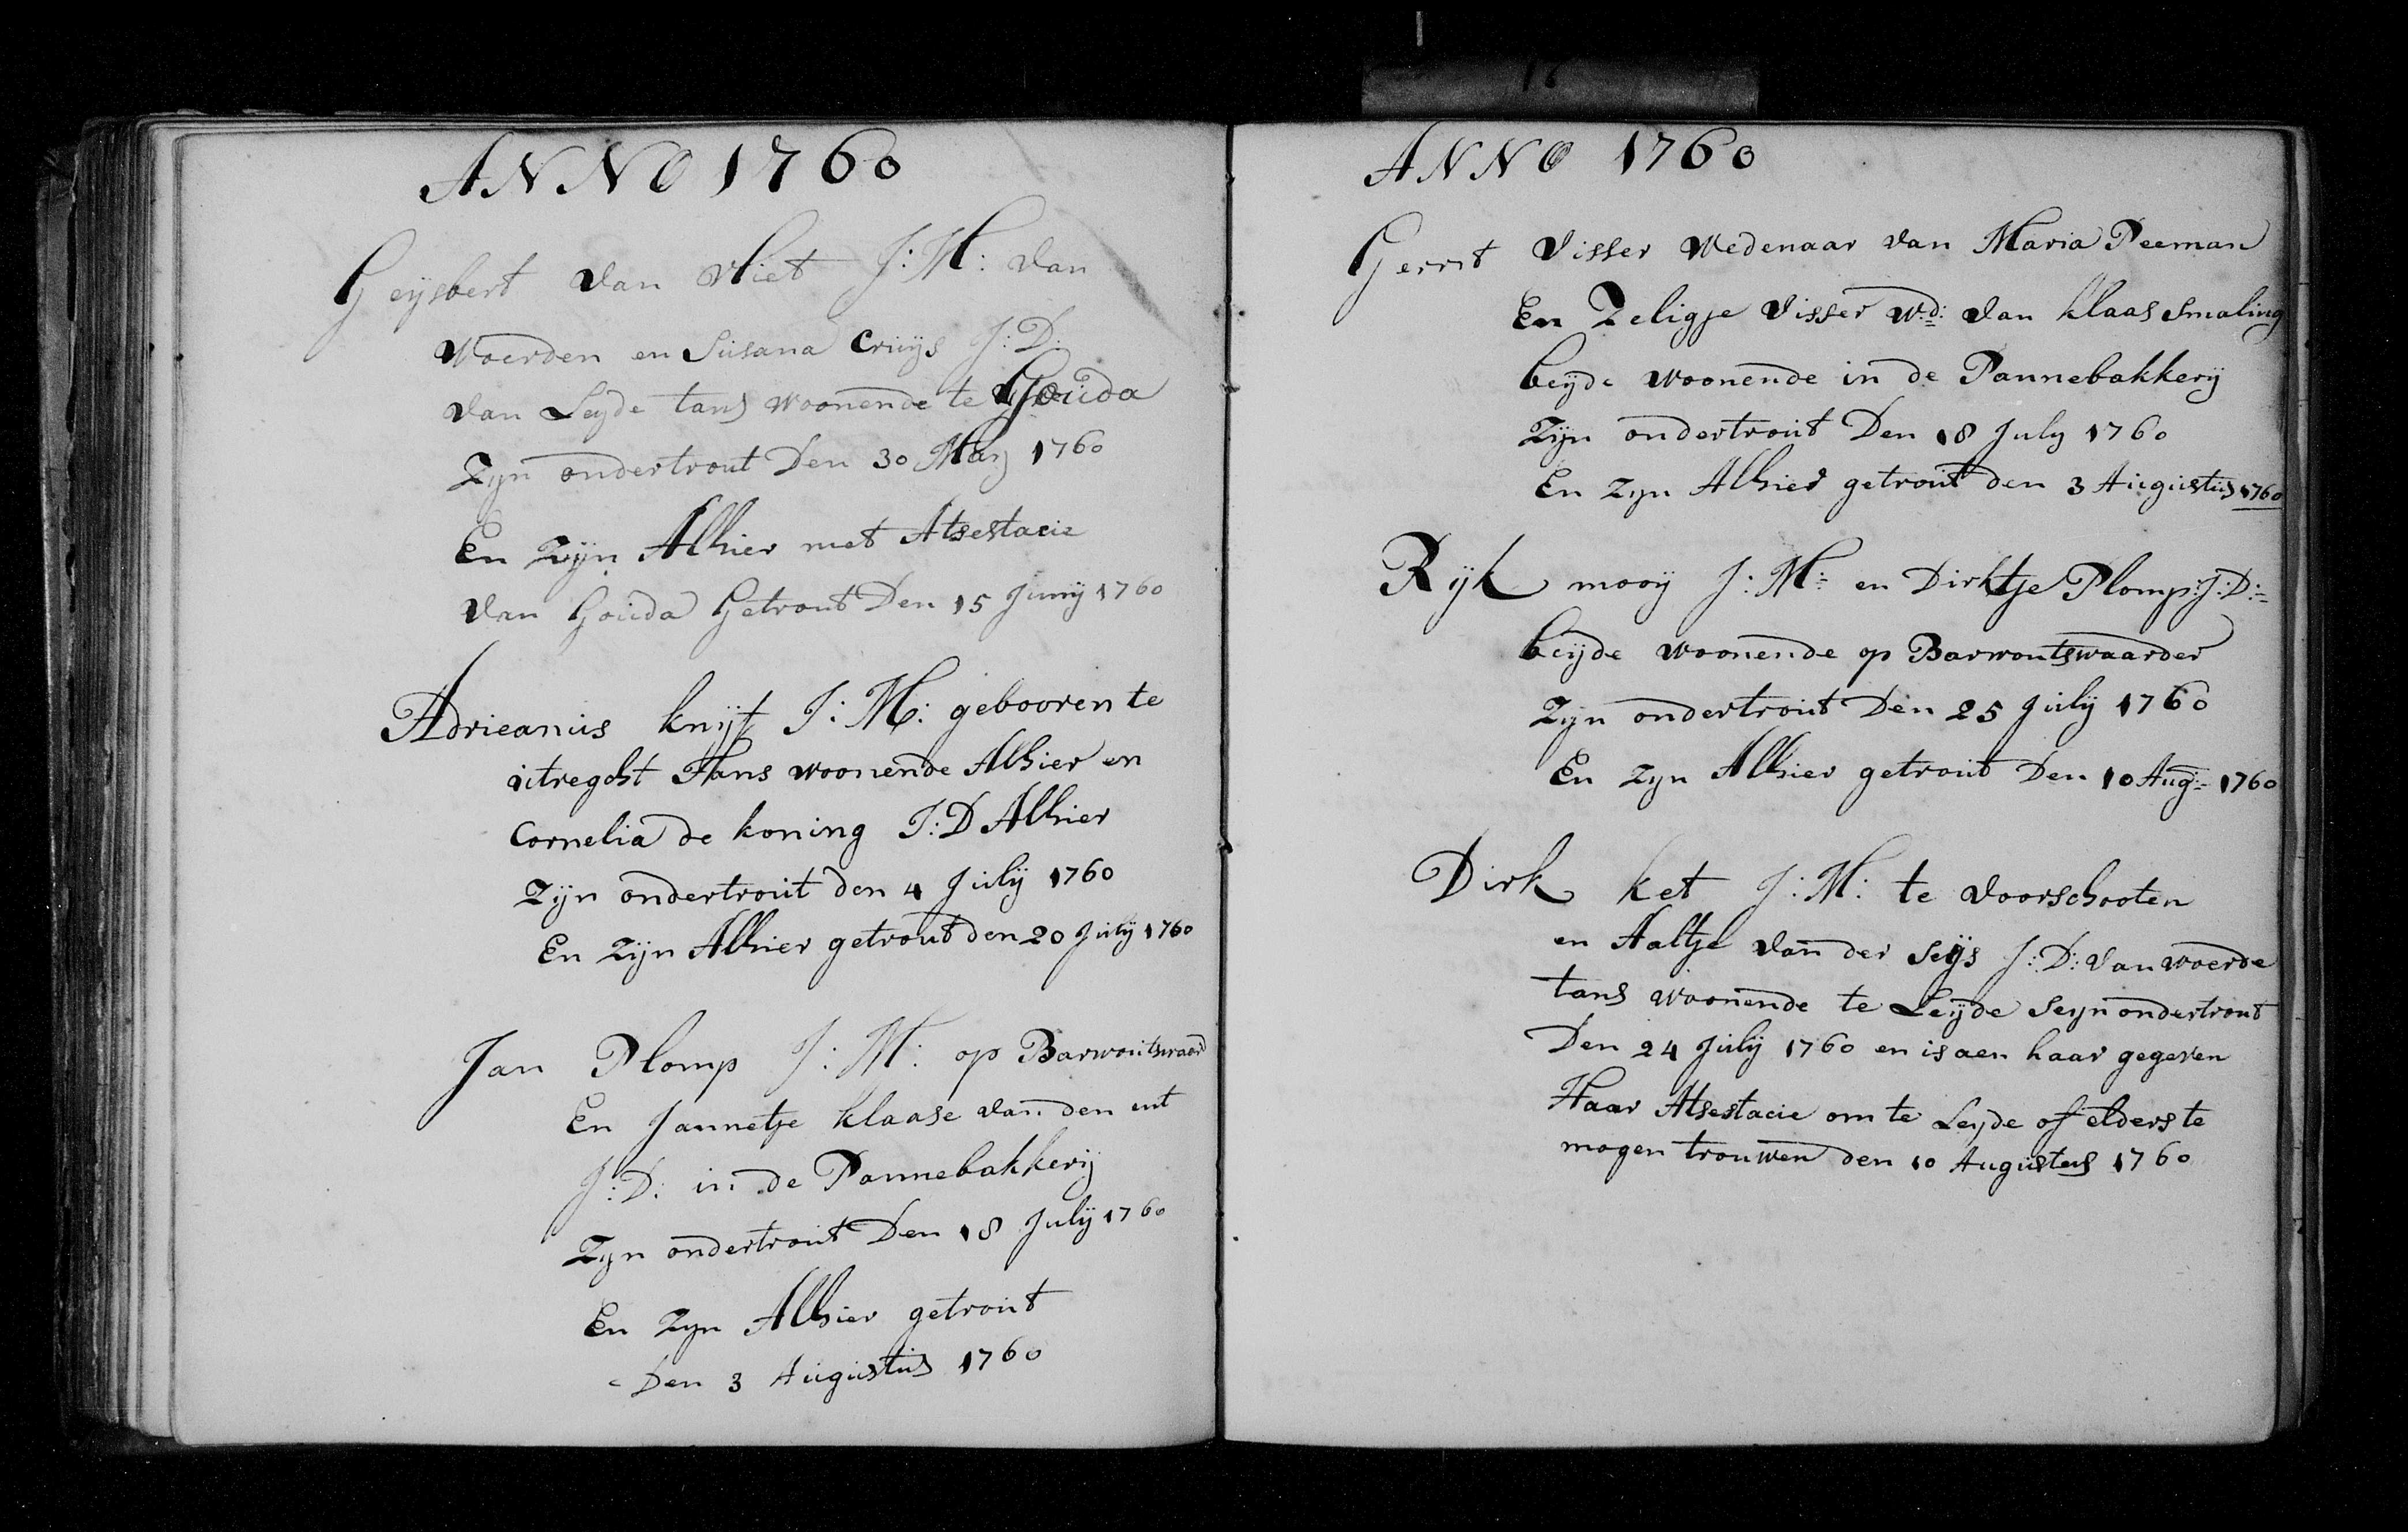 16
ANNO 1760
Geysbert van vliet J: M: van
Woerden en Susana Cruys J: D:
van Leyde tans woonende te Gouda
Zyn ondertrout Den 30 May 1760
En Zijn Alhier met Atsestacie
van Gouda Getrout Den 15 Juny 1760
Adrieanus knijf J: M: gebooren te
utregcht Thans woonende Alhier en
Cornelia de koning J: D Alhier
Zijn ondertrout den 4 July 1760
En Zijn Alhier getrout den 20 July 1760
Jan Plomp J: M: op Barwoutswaard
En Jannetje klaase van den ent
J: D: in de Pannebakkerij
Zyn ondertrout Den 18 July 1760
En Zyn Alhier getrout
Den 3 Augustus 1760
ANNO 1760
Gerrit Visser Wedenaar van Maria Peeman
En Zeligje Visser Wd: van klaas Smaling
beijde woonende in de Pannebakkerij
Zijn ondertrout Den 18 July 1760
En Zyn Alhier getrout den 3 Augustus 1760
Rijk mooij J: M: en Dirktje Plomp: J: D:
beijde woonende op Barwoutswaarder
Zyn ondertrout Den 25 July 1760
En Zyn Alhier getrout Den 10 Aug: 1760
Dirk ket J: M: te voorschooten
en Aaltje van der Seijs J: D: van woerde
tans woonende te Leijde Seyn ondertrout
Den 24 July 1760 en is aen haar gegeven
Haar Atsestacie om te Leyde of elders te
mogen trouwen den 10 Augustus 1760